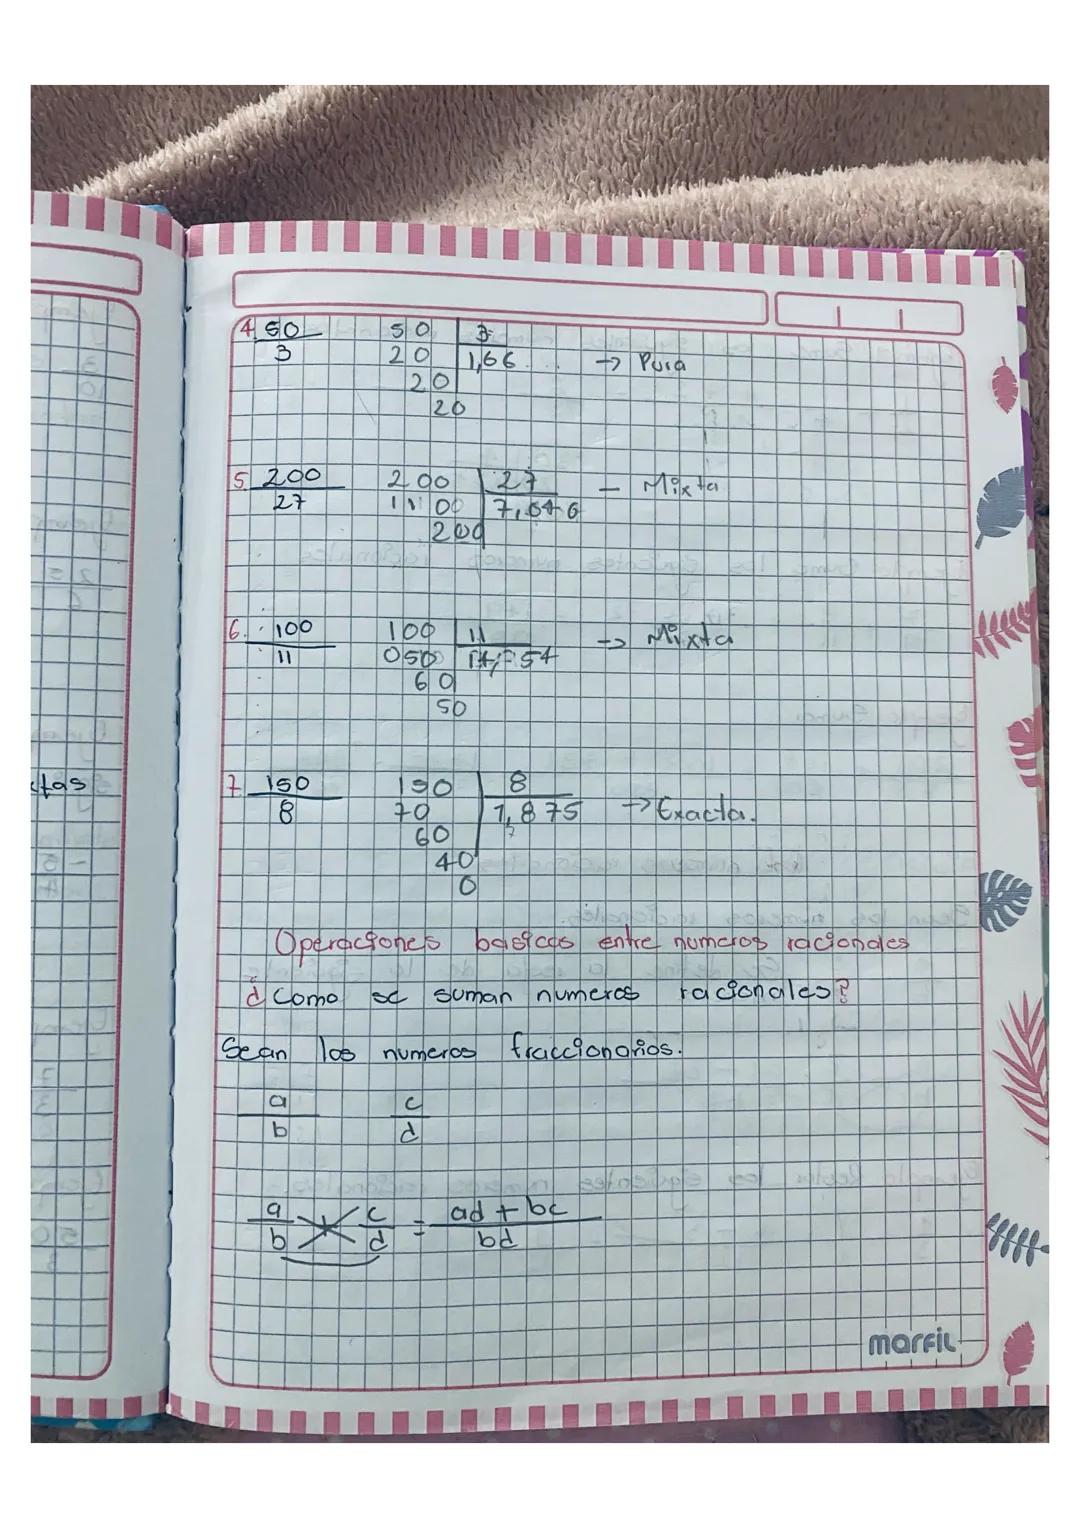 4. 50 50 3
3 20 1,66... → Pura
20
20
5. 200 200 27 - Mixta
27 200
6. 100 100 11 → Mixta
11 050
60
50
7. 150 150 8
8 70 1,875 → Exacta.
60
40
0
Operaciones basicas entre numeros racionales
¿Como se suman numeros racionales?
Sean los numeros fraccionarios.
a c
b d
a c = ad + bc
b d bd
marfil
ctas